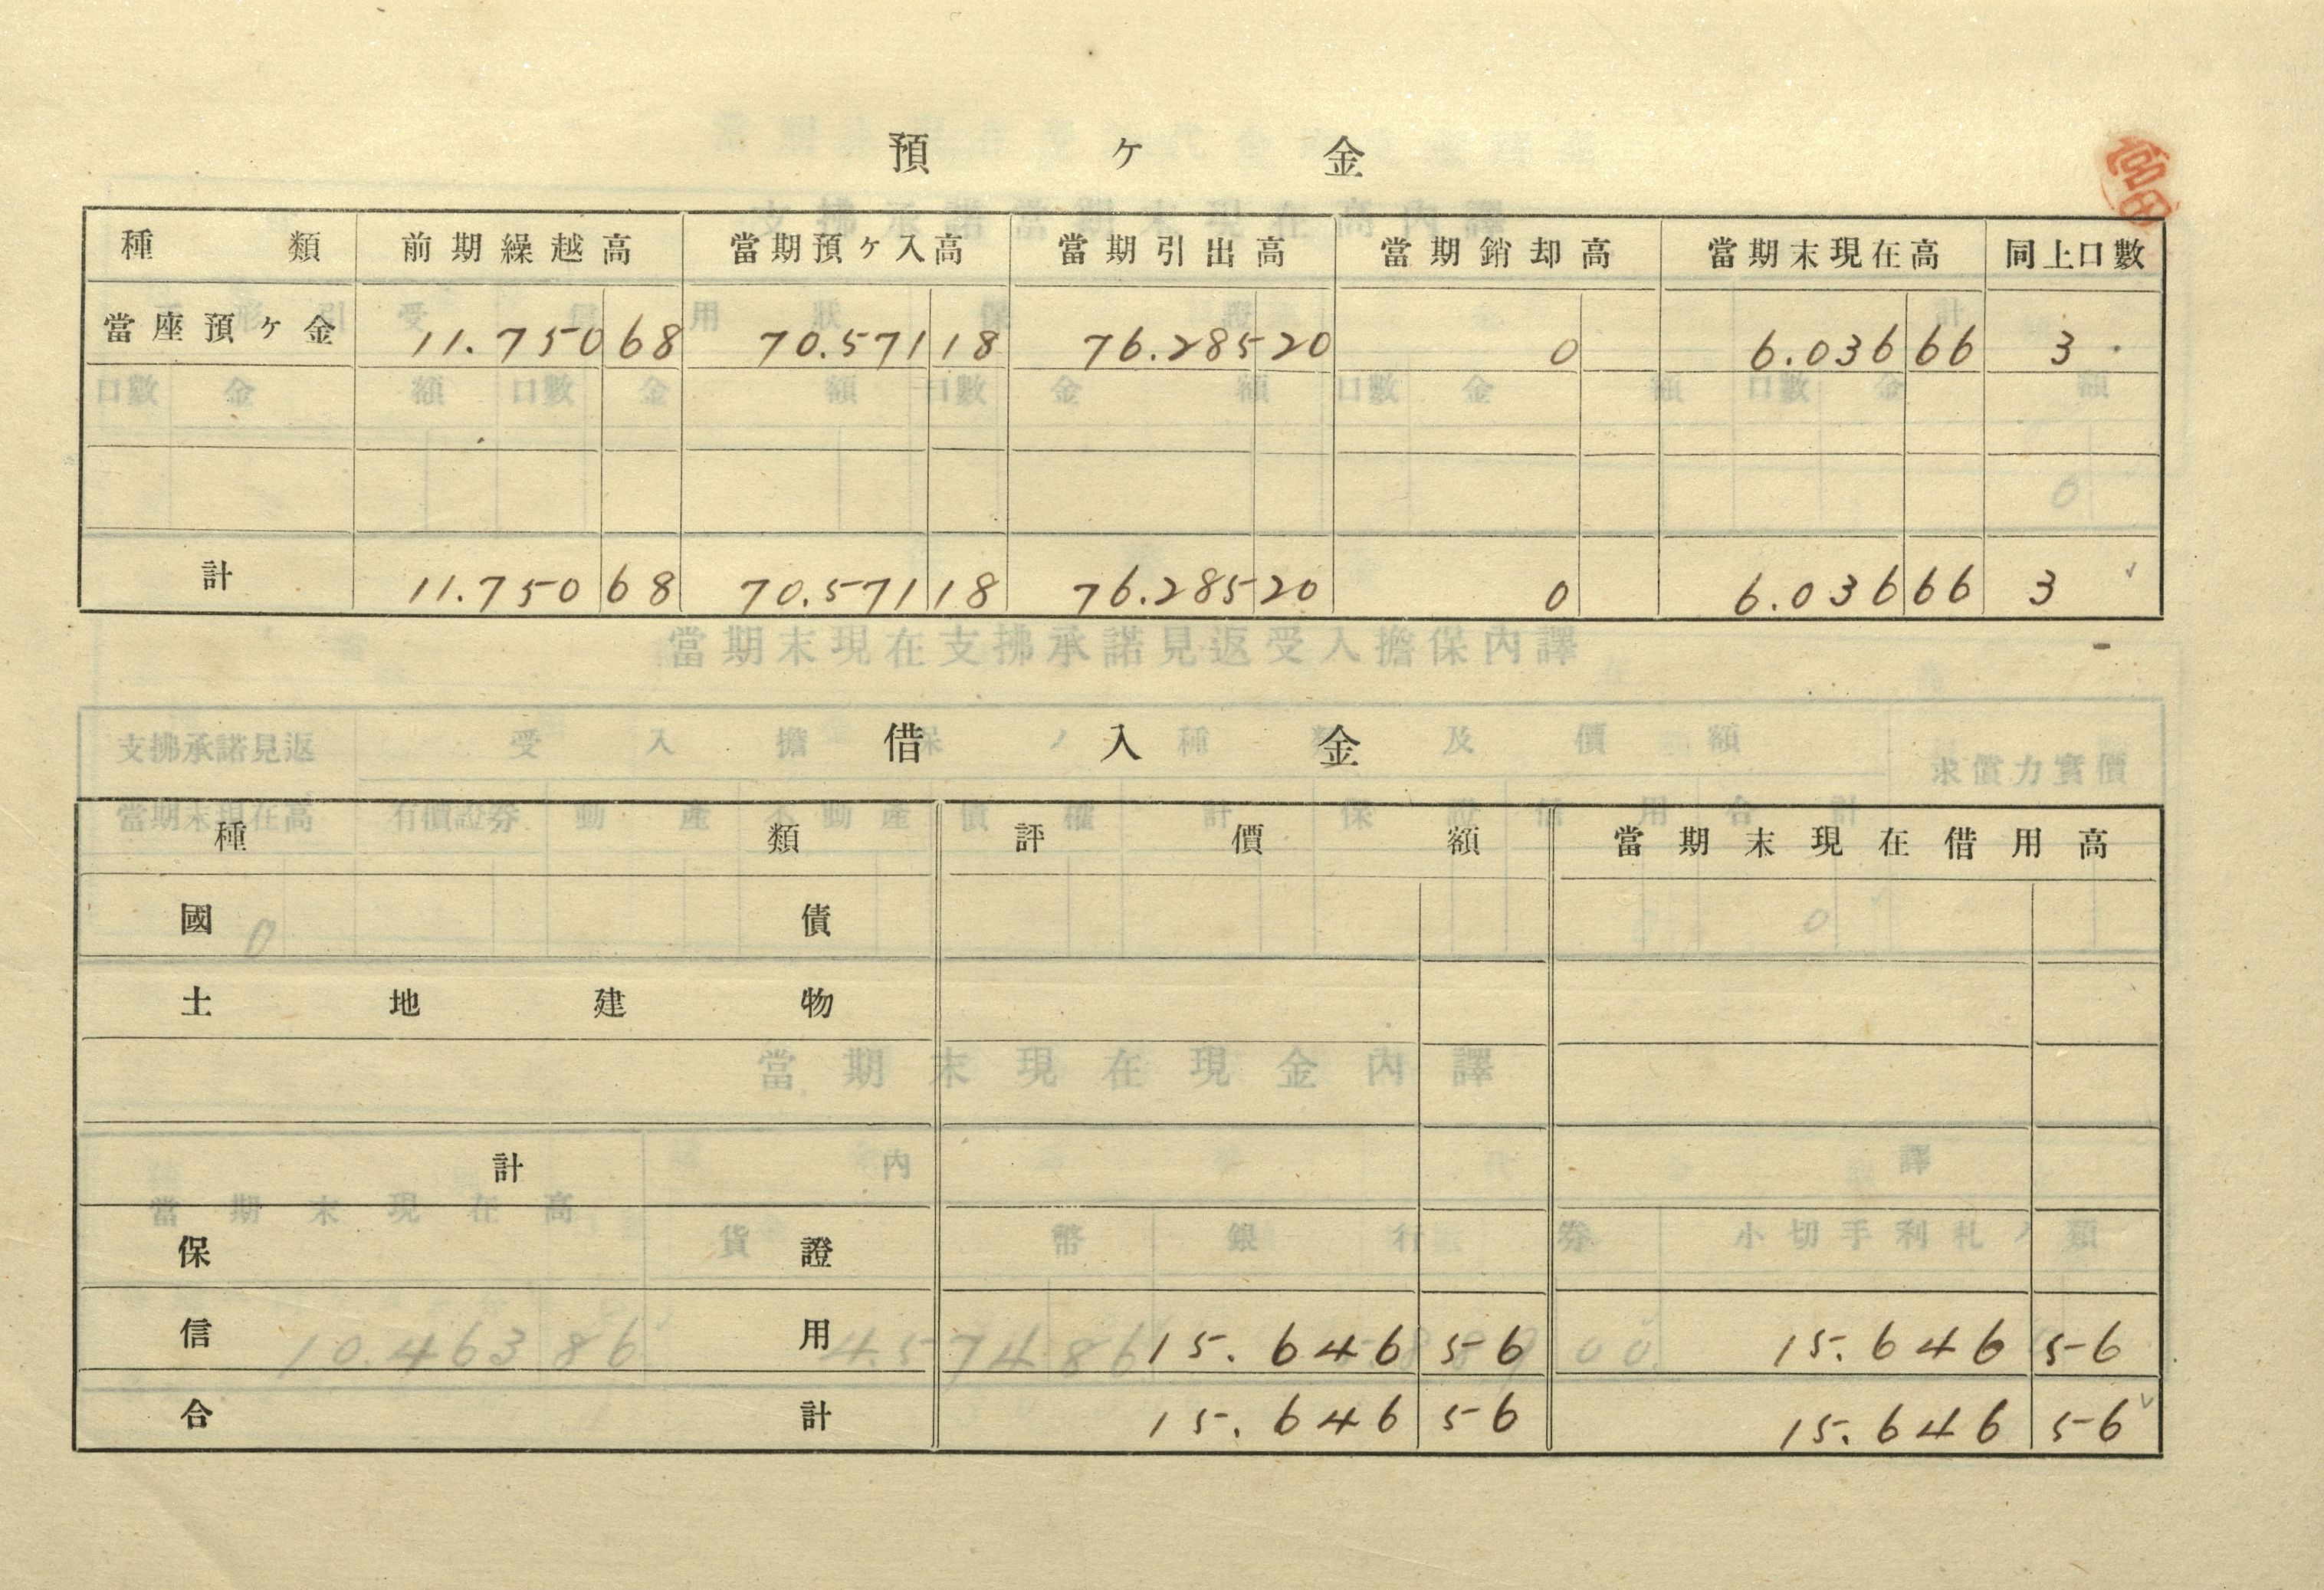 預ヶ金
宮田
種類 前期繰越高 當期預ヶ入高 當期引出高 當期銷却高 當期末現在高 同上口數
當座預ヶ金 11.750 68 70.571 18 76.285 20 0 6.036 66 3
計 11.750 68 70.571 18 76.285 20 0 6.036 66 3
借入金
種類 評價額 當期末現在借用高
國債
土地建物
計
保證
信用 15.646 56 15.646 56
合計 15.646 56 15.646 56